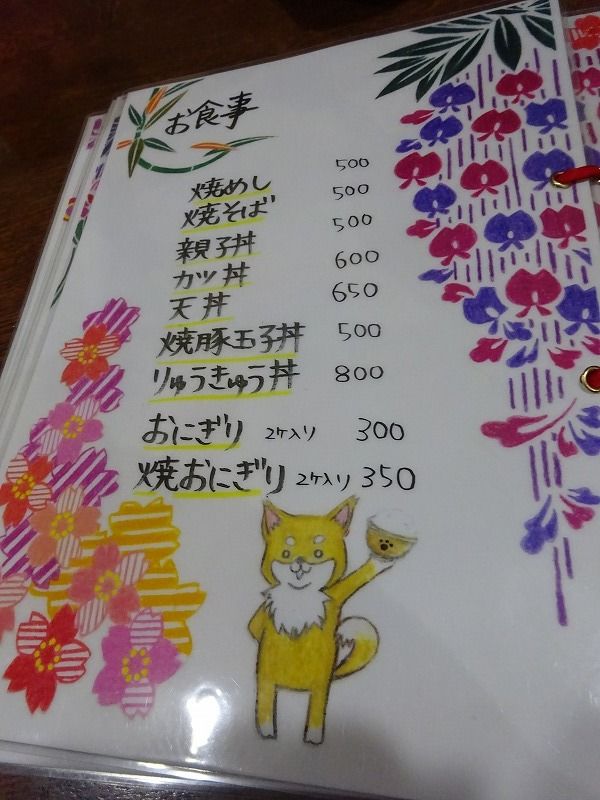 お食事
焼めし 500
焼そば 500
親子丼 500
カツ丼 600
天丼 650
焼豚玉子丼 500
りゅうきゅう丼 800
おにぎり 2ケ入り 300
焼おにぎり 2ケ入り 350